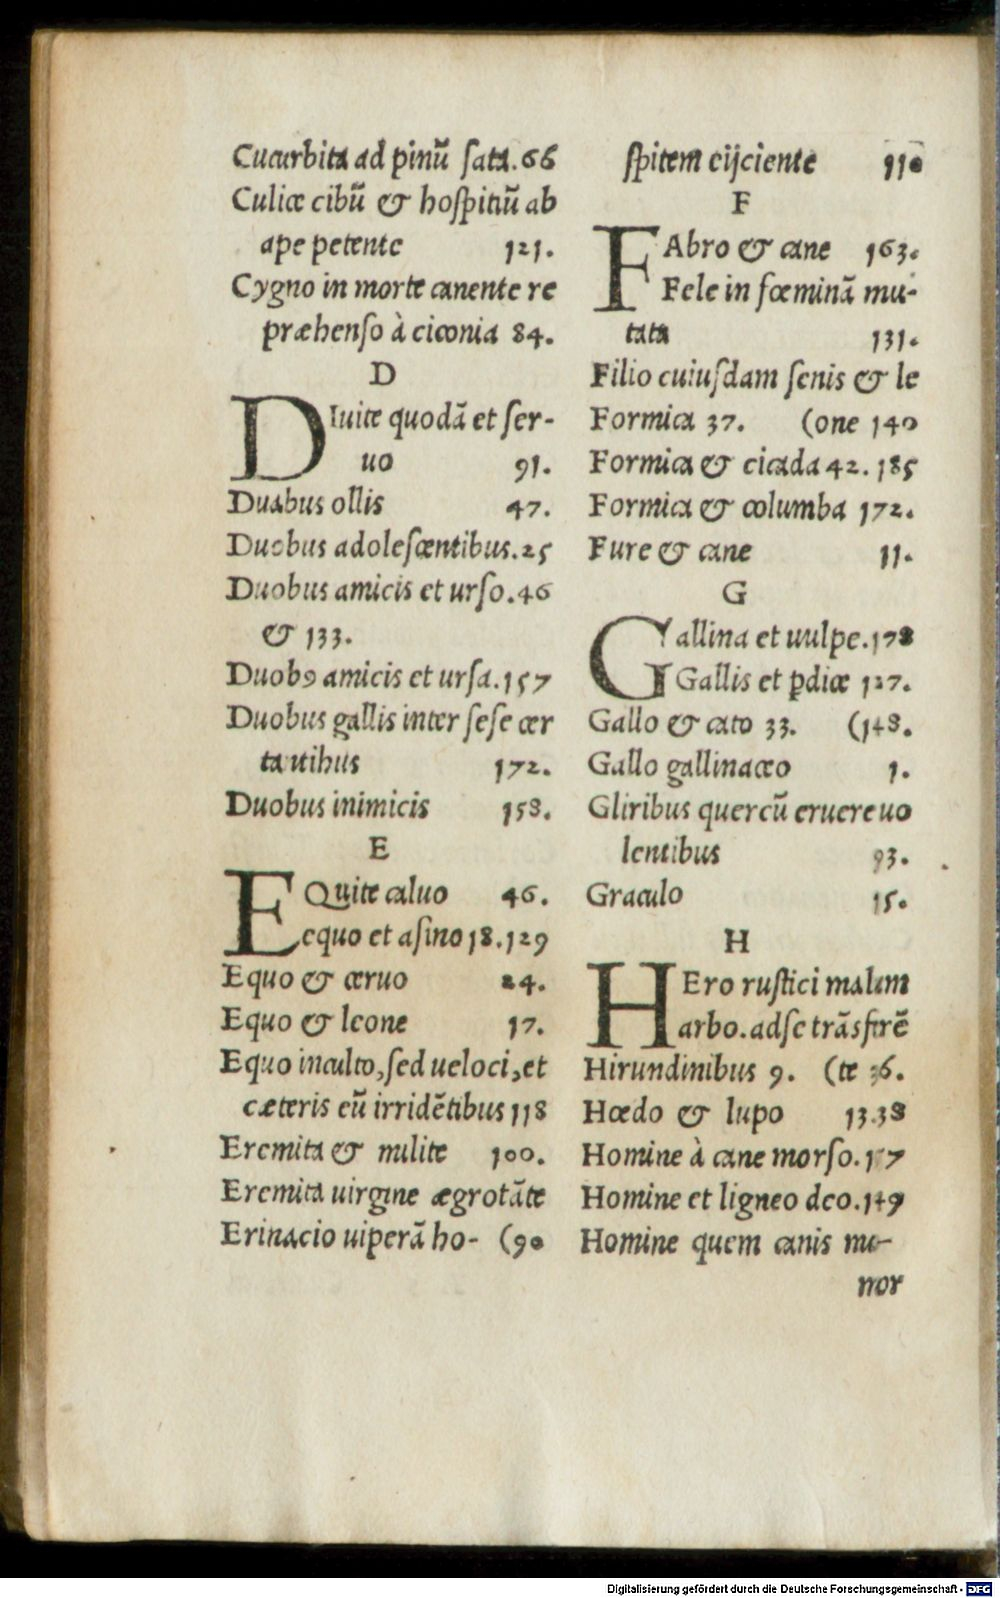 Cucurbita ad pinū ſata.66
Culice cibū & hoſpitiū ab
ape petente 121.
Cygno in morte canente re
præhenſo à ciconia 84.
D
DIuite quodā et ſer-
uo 91.
Duabus ollis 47.
Duobus adoleſcentibus.25
Duobus amicis et urſo.46
& 133.
Duobꝰ amicis et urſa.157
Duobus gallis inter ſeſe cer
tantibus 172.
Duobus inimicis 158.
E
EQuite caluo 46.
Eequo et aſino 18.129
Equo & ceruo 24.
Equo & leone 17.
Equo inculto, ſed ueloci, et
cæteris eū irridētibus 118
Eremita & milite 100.
Eremita uirgine ægrotāte
Erinacio uiperā ho- (90
ſpitem eijciente 110
F
FAbro & cane 163.
Fele in fœminā mu-
tata 131.
Filio cuiuſdam ſenis & le
Formica 37. (one 140
Formica & cicada 42. 185
Formica & columba 172.
Fure & cane 11.
G
Gallina et uulpe.178
Gallis et ꝑdice 127.
Gallo & cato 33. (148.
Gallo gallinaceo 1.
Gliribus quercū eruere uo
lentibus 93.
Graculo 15.
H
HEro ruſtici malum
arbo. ad ſe trāsferē
Hirundinibus 9. (te 36.
Hœdo & lupo 13.38
Homine à cane morſo.157
Homine et ligneo deo.149
Homine quem canis mu-
mor
Digitalisierung gefördert durch die Deutsche Forschungsgemeinschaft - DFG